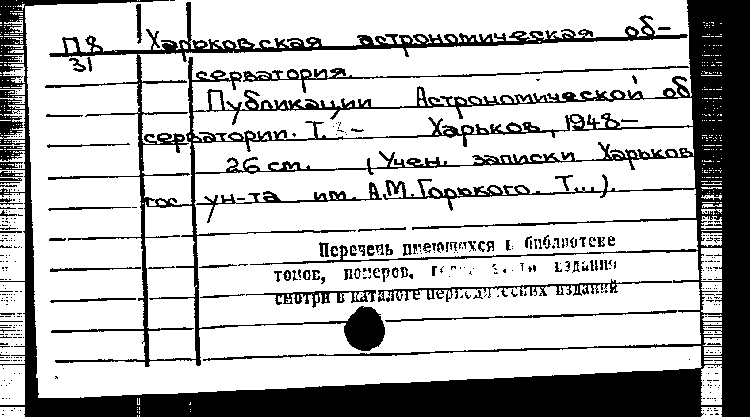 П8 Харьковская астрономическая об-
31 серватория.
Публикации Астрономической об
серватории. Т. 3- Харьков, 1948-
26 см. (Учен. записки Харьков
гос ун-та им. А.М. Горького. Т...).
Перечень имеющихся в библиотеке
томов, номеров, издания
смотри в каталоге периодических изданий